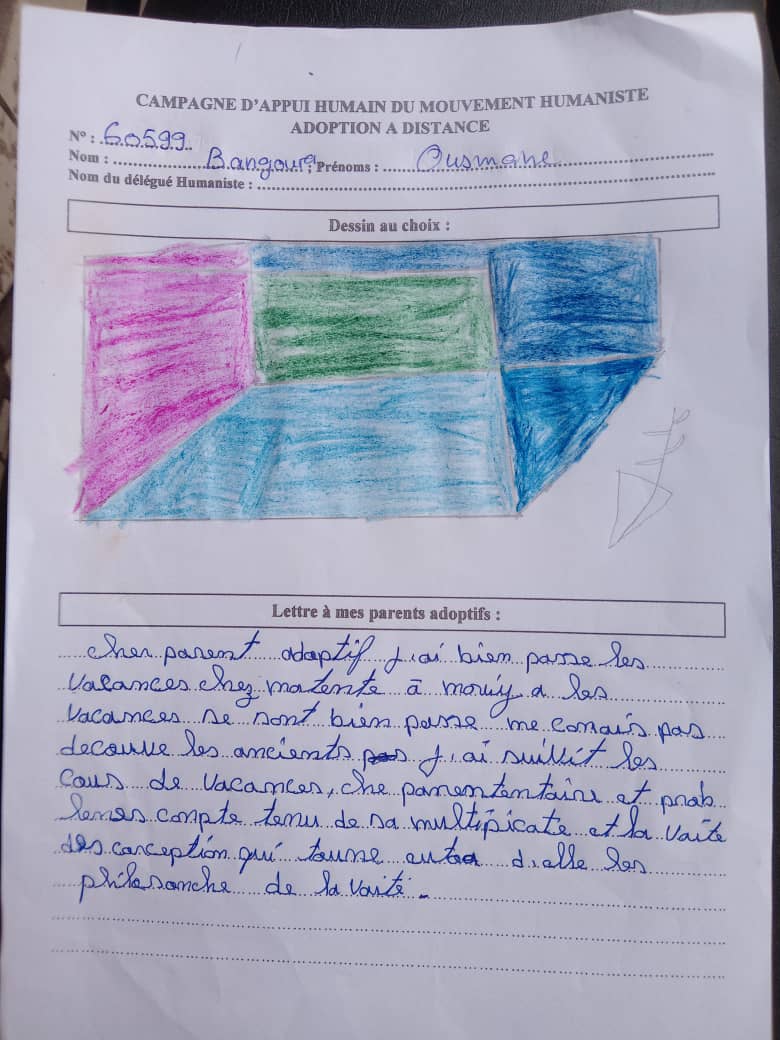 CAMPAGNE D'APPUI HUMAIN DU MOUVEMENT HUMANISTE
ADOPTION A DISTANCE
N° : 60599
Nom : Bangoura, Prénoms : Ousmane
Nom du délégué Humaniste :
Dessin au choix :
Lettre à mes parents adoptifs :
cher parent adaptif j'ai bien passe les
Vacances chez matente à a les
Vacances se sont bien passe me conais pas
decouve les ancients j'ai suillit les
Cous de Vacances, che et prob
lemes compte tenu de sa multipicate et la Vaite
des conception qui toune d'alle les
de la Vaité.